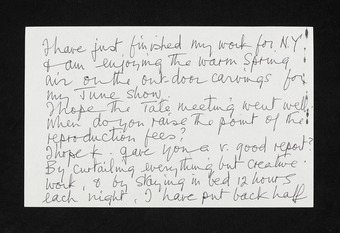 I have just finished my work for N.Y.
& am enjoying the warm Spring
air on the out door carvings for
my June show.
I hope the Tate meeting went well.
When do you raise the point of the
reproduction fees?
I hope K. gave you a v. good report?
By curtailing everything but creative
work, & by staying in bed 12 hours
each night, I have put back half